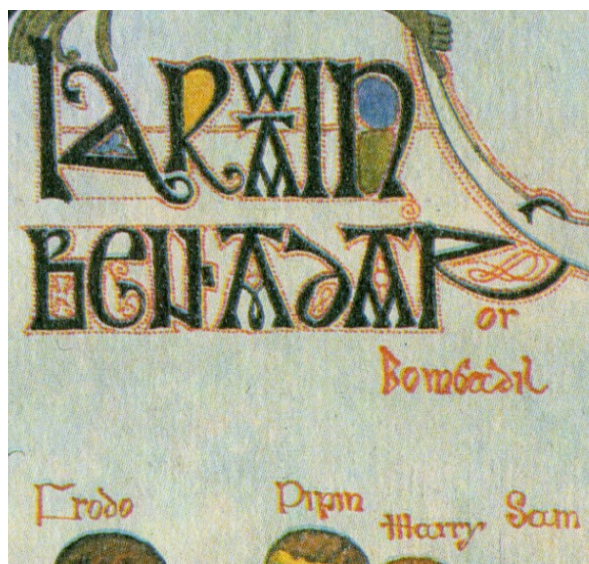 IARWAIN
BENADAR
or
Bombadil
Frodo Pipin Marry Sam